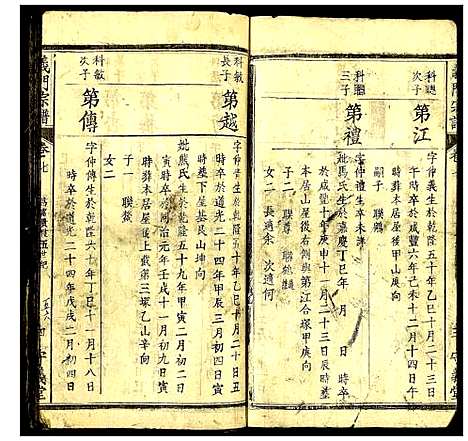 科總
次子
第江
字仲義生於乾隆五十年乙巳十一月二十三日
午時卒於咸豐六年己未十二月十四日午
時葬本居屋後山甲庚向
嗣子 聯
科總
三子
第禮
字仲禮生卒未詳
妣馬氏生於嘉慶丁巳年 月 日 時卒
於咸豐十年庚申十一月二十三日辰時葬
本居屋後右側與第江合塚甲庚向
子二 聯尊
女二 長適余 次適何
科敏
長子
第越
字仲晉生於乾隆五十年乙巳月二十日丑
時卒於道光二十四年甲辰三月初四日寅
時葬下屋基艮山坤向
妣熊氏生於乾隆五十九年甲寅二月初三日
寅時卒於同治元年壬戌十一月初九日寅
時葬本居屋後上截第三塚乙山辛向
子一 聯發
女二
科敏
次子
第傳
字仲傳生於乾隆六十年丁巳十一月十八日
時卒於道光二十四年戊戌二月初四日
義門宗譜
卷七
五世紀
守義堂